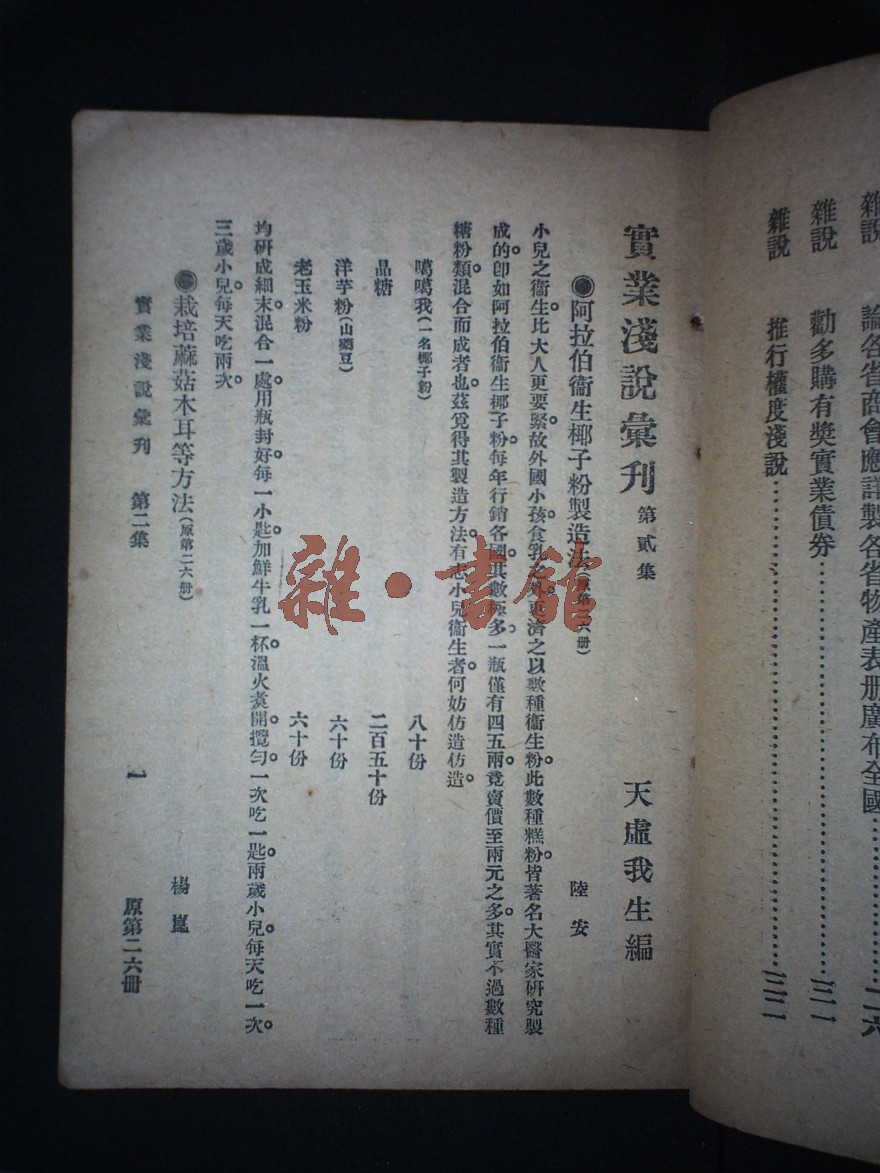 雜說　論各省商會應詳製各省物產表册廣布全國……二六
雜說　勸多購有獎實業債券……三一
雜說　推行權度淺說……三二
實業淺說彙刊 第貳集　天虛我生編
●阿拉伯衞生椰子粉製造法(原第二六册)　陸安
小兒之衞生比大人更要緊故外國小孩食乳之外更濟之以數種衞生粉此數種糕粉皆著名大醫家研究製
成的卽如阿拉伯衞生椰子粉每年行銷各國。其數極多。一瓶僅有四五兩。竟賣價至兩元之多。其實不過數種
糖粉類混合而成者也。茲覓得其製造方法。有志小兒衞生者。何妨仿造仿造。
噶噶我(一名椰子粉)　八十份
晶糖　二百五十份
洋芋粉(山鄉豆)　六十份
老玉米粉　六十份
均研成細末。混合一處。用瓶封好。每一小匙。加鮮牛乳一杯。溫火煑開。攪勻。一次吃一匙。兩歲小兒。每天吃一次。
三歲小兒。每天吃兩次。
●栽培蔴菇木耳等方法(原第二六册)　楊崑
實業淺說彙刊　第二集　一　原第二六册
雜·書館